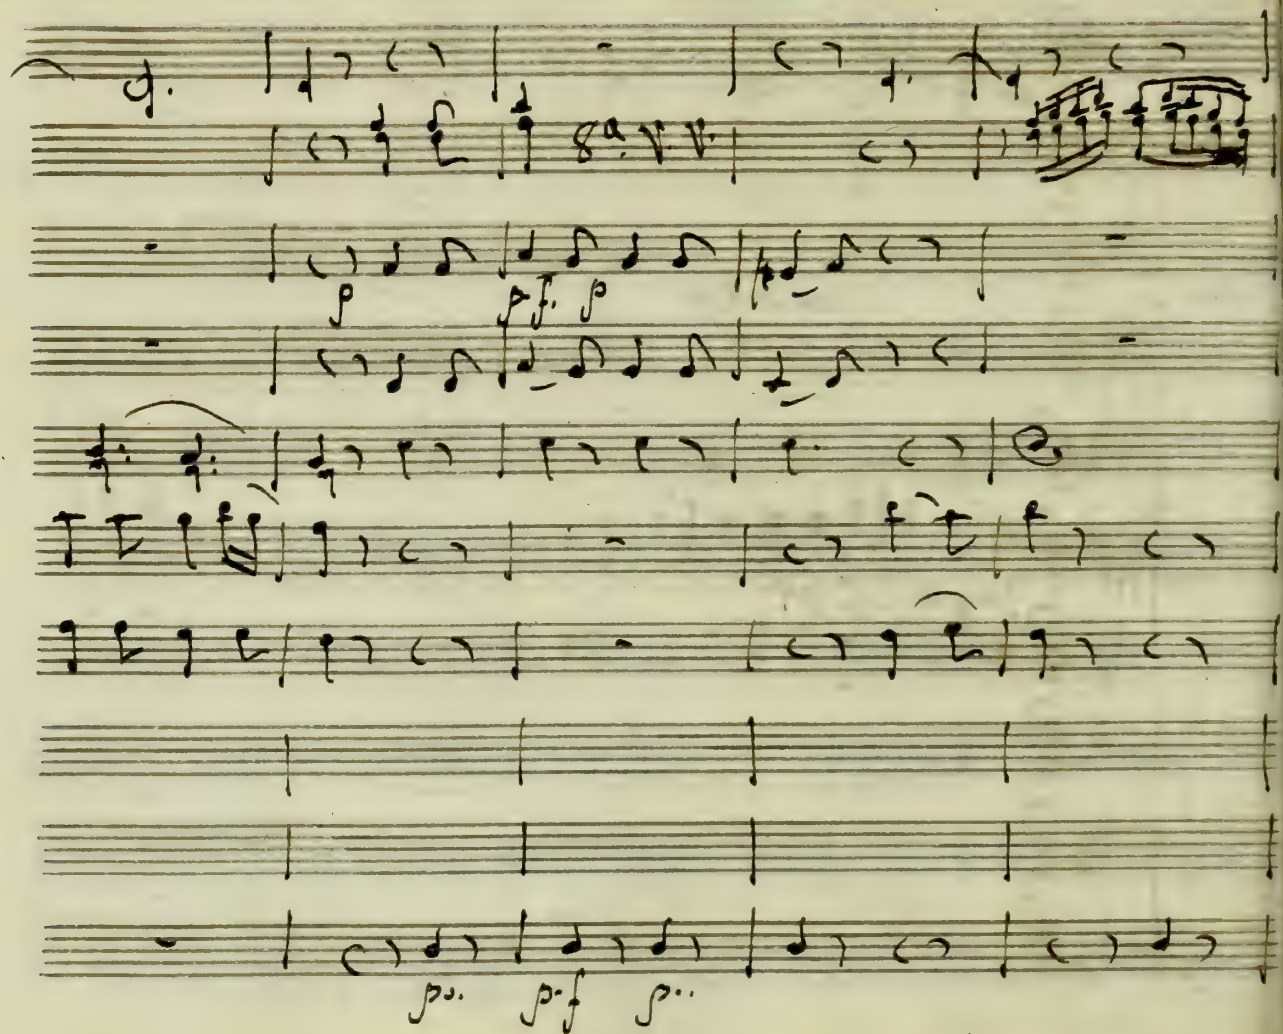 8ª V. V.
p p f. p
po. p. f p..